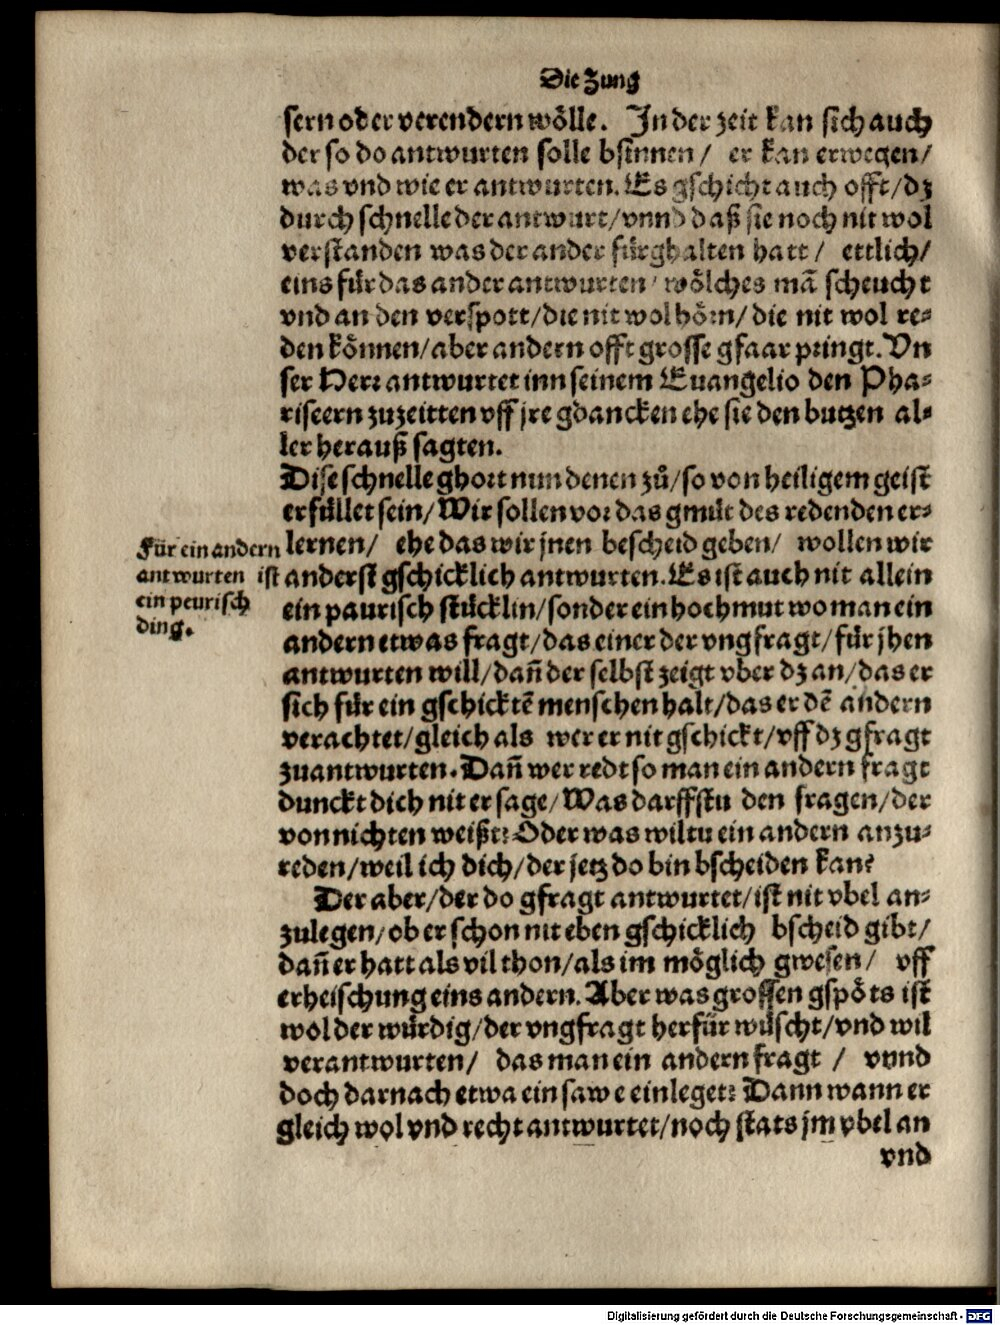 Die Zung
sern oder verendern wölle. In der zeit kan sich auch
der so do antwurten solle bsinnen/ er kan erwegen/
was vnd wie er antwurten. Es gschicht auch offt/dz
durch schnelle der antwurt/vnnd daß sie noch nit wol
verstanden was der ander fürghalten hatt/ ettlich/
eins für das ander antwurten/wölches mã scheucht
vnd an den verspott/die nit wol hörn/die nit wol re-
den können/aber andern offt grosse gfaar pringt. Vn
ser Herr antwurtet inn seinem Euangelio den Pha-
riseern zuzeitten vff jre gdancken ehe sie den butzen al-
ler herauß sagten.
Dise schnelle ghort nun denen zů/so von heiligem geist
erfüllet sein/Wir sollen vor das gmüt des redenden er-
lernen/ ehe das wir jnen bescheid geben/ wollen wir
anderst gschicklich antwurten. Es ist auch nit allein
ein paurisch stücklin/sonder ein hochmut wo man ein
andern etwas fragt/das einer der vngfragt/für jhen
antwurten will/dañ der selbst zeigt vber dz an/das er
sich für ein gschicktẽ menschen halt/das er dẽ andern
verachtet/gleich als wer er nit gschickt/vff dz gfragt
zuantwurten. Dañ wer redt so man ein andern fragt
dunckt dich nit er sage/Was darffstu den fragen/der
von nichten weißt? Oder was wiltu ein andern anzu-
reden/weil ich dich/der jetz do bin bscheiden kan?
Der aber/der do gfragt antwurtet/ist nit vbel an-
zulegen/ob er schon nit eben gschicklich bscheid gibt/
dañ er hatt als vil thon/als im möglich gwesen/ vff
erheischung eins andern. Aber was grossen gspöts ist
wol der würdig/der vngfragt herfür wüscht/vnd wil
verantwurten/ das man ein andern fragt/ vnnd
doch darnach etwa ein sawe einleget? Dann wann er
gleich wol vnd recht antwurtet/noch stats jm vbel an
vnd
Für ein andern
antwurten ist
ein peurisch
ding.
Digitalisierung gefördert durch die Deutsche Forschungsgemeinschaft - DFG